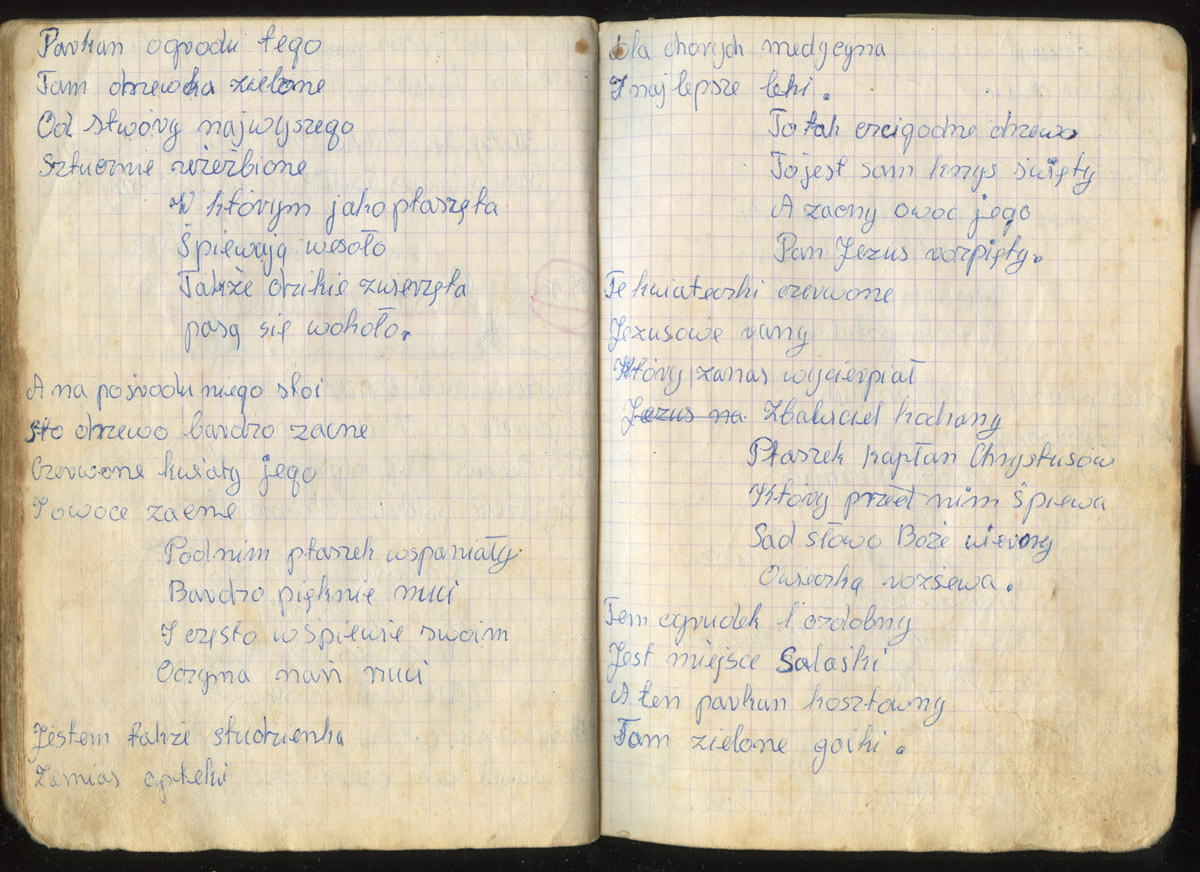 Parkan ogrodu tego
Tam drzewka zielone
Od stwóry najwyszego
Sztucznie rzeźbione
W którym jako ptaszęta
Śpiewają wesoło
Także dzikie zwierzęta
pasą się wokoło.
A na pośrodu niego stoi
sto drzewo bardzo zacne
Czerwone kwiaty jego
I owoce zacne
Pod nim ptaszek wspaniały
Bardzo pięknie nuci
I często w śpiewie swoim
Oczyna nań nuci
Jestem także studzienka
Zamias apteki
dla chorych medycyna
I najlepsze leki.
To tak czcigodne drzewo
To jest sam krzys święty
A zacny owoc jego
Pan Jezus rozpięty.
Te kwiateczki czerwone
Jezusowe rany
Który zanas wycierpiał
Jezus na Zbawiciel kochany
Ptaszek kapłan Chrystusów
Który przed nim śpiewa
Sad słowo Boże wierny
Owieczką rozsiewa.
Tem ogrudek i ozdobny
Jest miejsce Salaśki
A ten parkan kosztowny
Tam zielone gaiki.